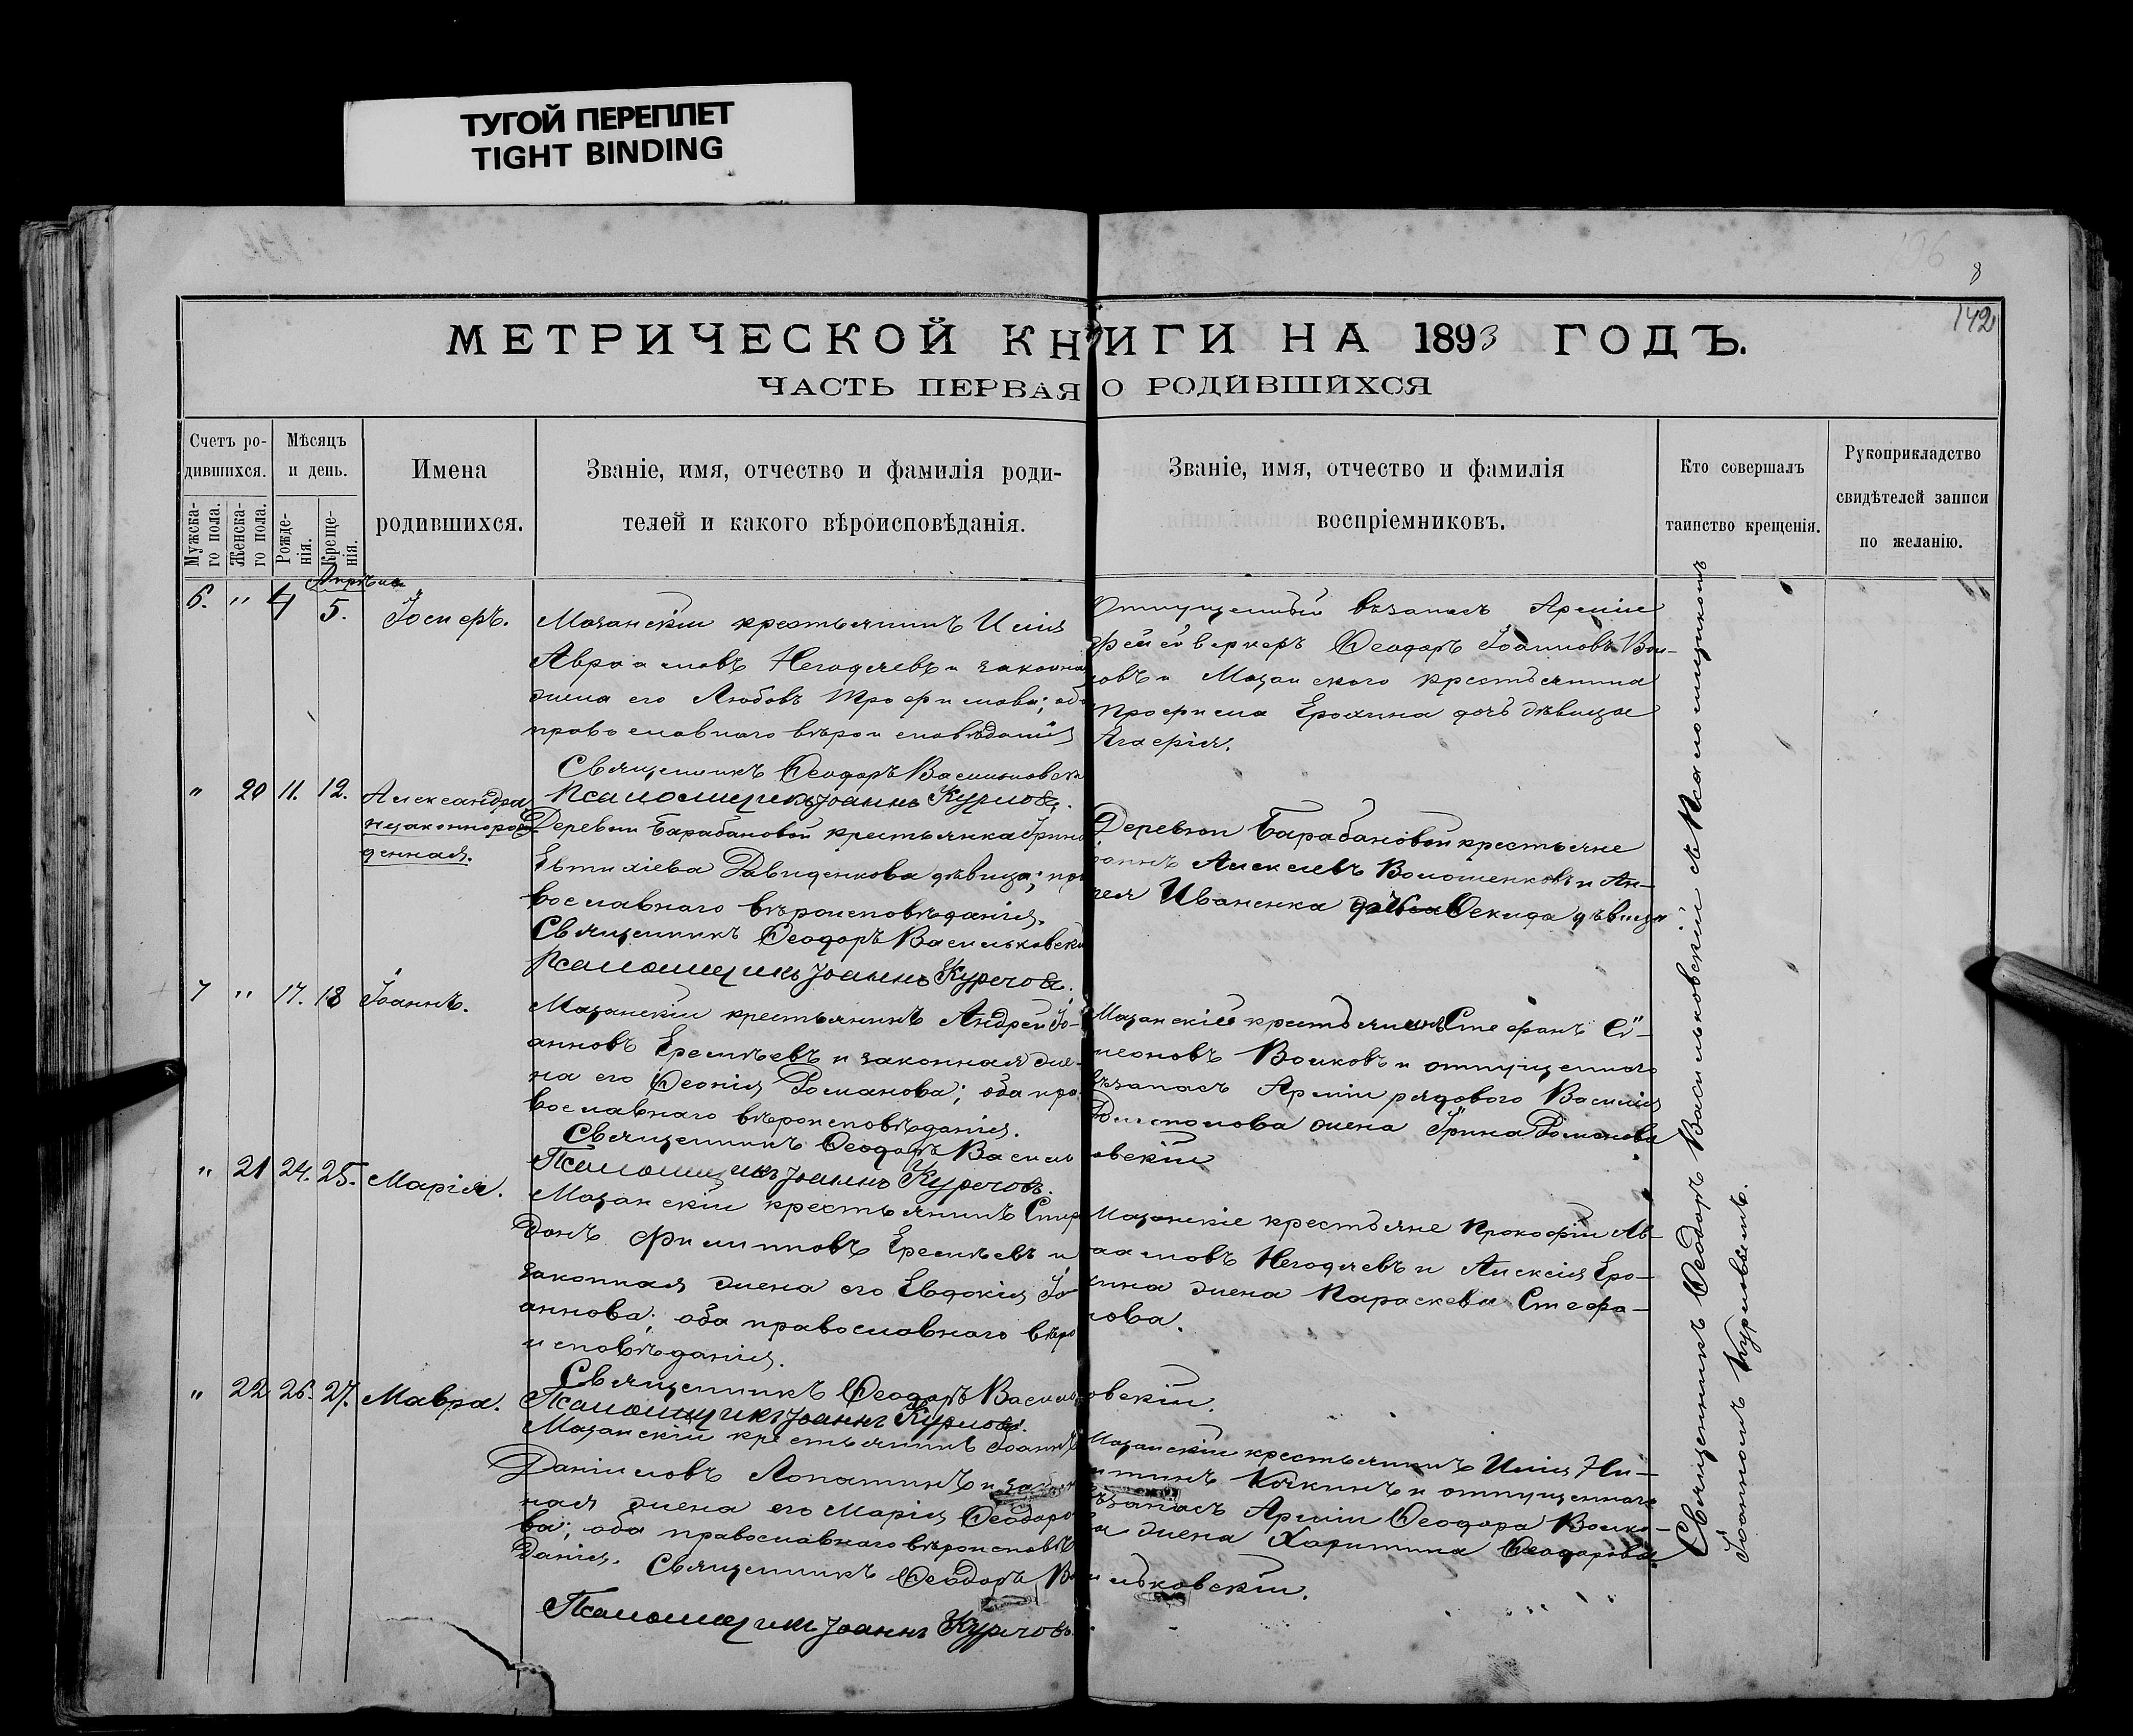 ТУГОЙ ПЕРЕПЛЕТ
TIGHT BINDING
8
142
МЕТРИЧЕСКОЙ КНИГИ НА 1893 ГОДЪ.
ЧАСТЬ ПЕРВАЯ О РОДИВШИХСЯ
Счетъ ро-
дившихся.
Мужска-
го пола.
Женска-
го пола.
Мѣсяцъ
и день.
Рожде-
нія.
Креще-
нія.
Имена
родившихся.
Званіе, имя, отчество и фамилія роди-
телей и какого вѣроисповѣданія.
Званіе, имя, отчество и фамилія
воспріемниковъ.
Кто совершалъ
таинство крещенія.
Рукоприкладство
свидѣтелей записи
по желанію.
Апрѣля
6. " 4 5. Іосифъ.
Мазанскій крестьянинъ Илія
Авраамовъ Негодяевъ и законная
жена его Любовь Трофимова; оба
православнаго вѣроисповѣданія
Священникъ Ѳеодоръ Васильковскій
Псаломщикъ Іоаннъ Курловъ.
Отпущенный въ запасъ Арміи
фейерверкеръ Ѳеодоръ Іоанновъ Вол-
ковъ и Мазанского крестьянина
Трофима Ерохина дочь дѣвица
Агафія.
" 20 11. 12. Александра
незаконнорож-
денная.
Деревни Барабановой крестьянка Ірина
Евтихіева Давиденкова дѣвица; пра-
вославнаго вѣроисповѣданія.
Священникъ Ѳеодоръ Васильковскій
Псаломщикъ Іоаннъ Курловъ.
Деревни Барабановой крестьяне
Іоаннъ Алексіевъ Волошенковъ и Ан-
Иваненка дѣвица
7 " 17. 18 Іоаннъ.
Мазанскій крестьянинъ Андрей Іо-
анновъ Еремѣевъ и законная же-
на его Ѳеонія Романова; оба пра-
вославнаго вѣроисповѣданія.
Священникъ Ѳеодоръ Васильковскій
Псаломщикъ Іоаннъ Курловъ.
Мазанскій крестьянинъ Стефанъ Си-
меоновъ Волковъ и отпущеннаго
въ запасъ Арміи рядового Василія
жена Ірина Романова
" 21 24. 25. Марія.
Мазанскій крестьянинъ Спири-
донъ Филипповъ Еремѣевъ и
законная жена его Евдокія Іо-
аннова; оба православнаго вѣро-
исповѣданія.
Священникъ Ѳеодоръ Васильковскій.
Псаломщикъ Іоаннъ Курловъ.
Мазанскіе крестьяне Прокофій Ав-
раамовъ Негодяевъ и Алексія Еро-
хина жена Параскева Стефа-
нова.
" 22 26. 27. Мавра.
Мазанскій крестьянинъ Іоаннъ
Даніиловъ Лопатинъ и закон-
ная жена его Марія Ѳеодоро-
ва; оба православнаго вѣроисповѣ-
данія. Священникъ Ѳеодоръ Васильковскій.
Псаломщикъ Іоаннъ Курловъ.
Мазанскій крестьянинъ Илія Ни-
китинъ Кочкинъ и отпущеннаго
въ запасъ Арміи Ѳеодора Волко-
ва жена Харитина Ѳеодорова
Священникъ Ѳеодоръ Васильковскій съ Псаломщикомъ
Іоанномъ Курловымъ.